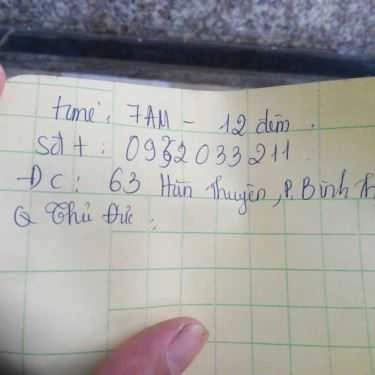 time: 7AM - 12 đêm.
sđt: 0932033211
ĐC: 63 Hàn Thuyên, P. Bình Th
Q Thủ Đức.